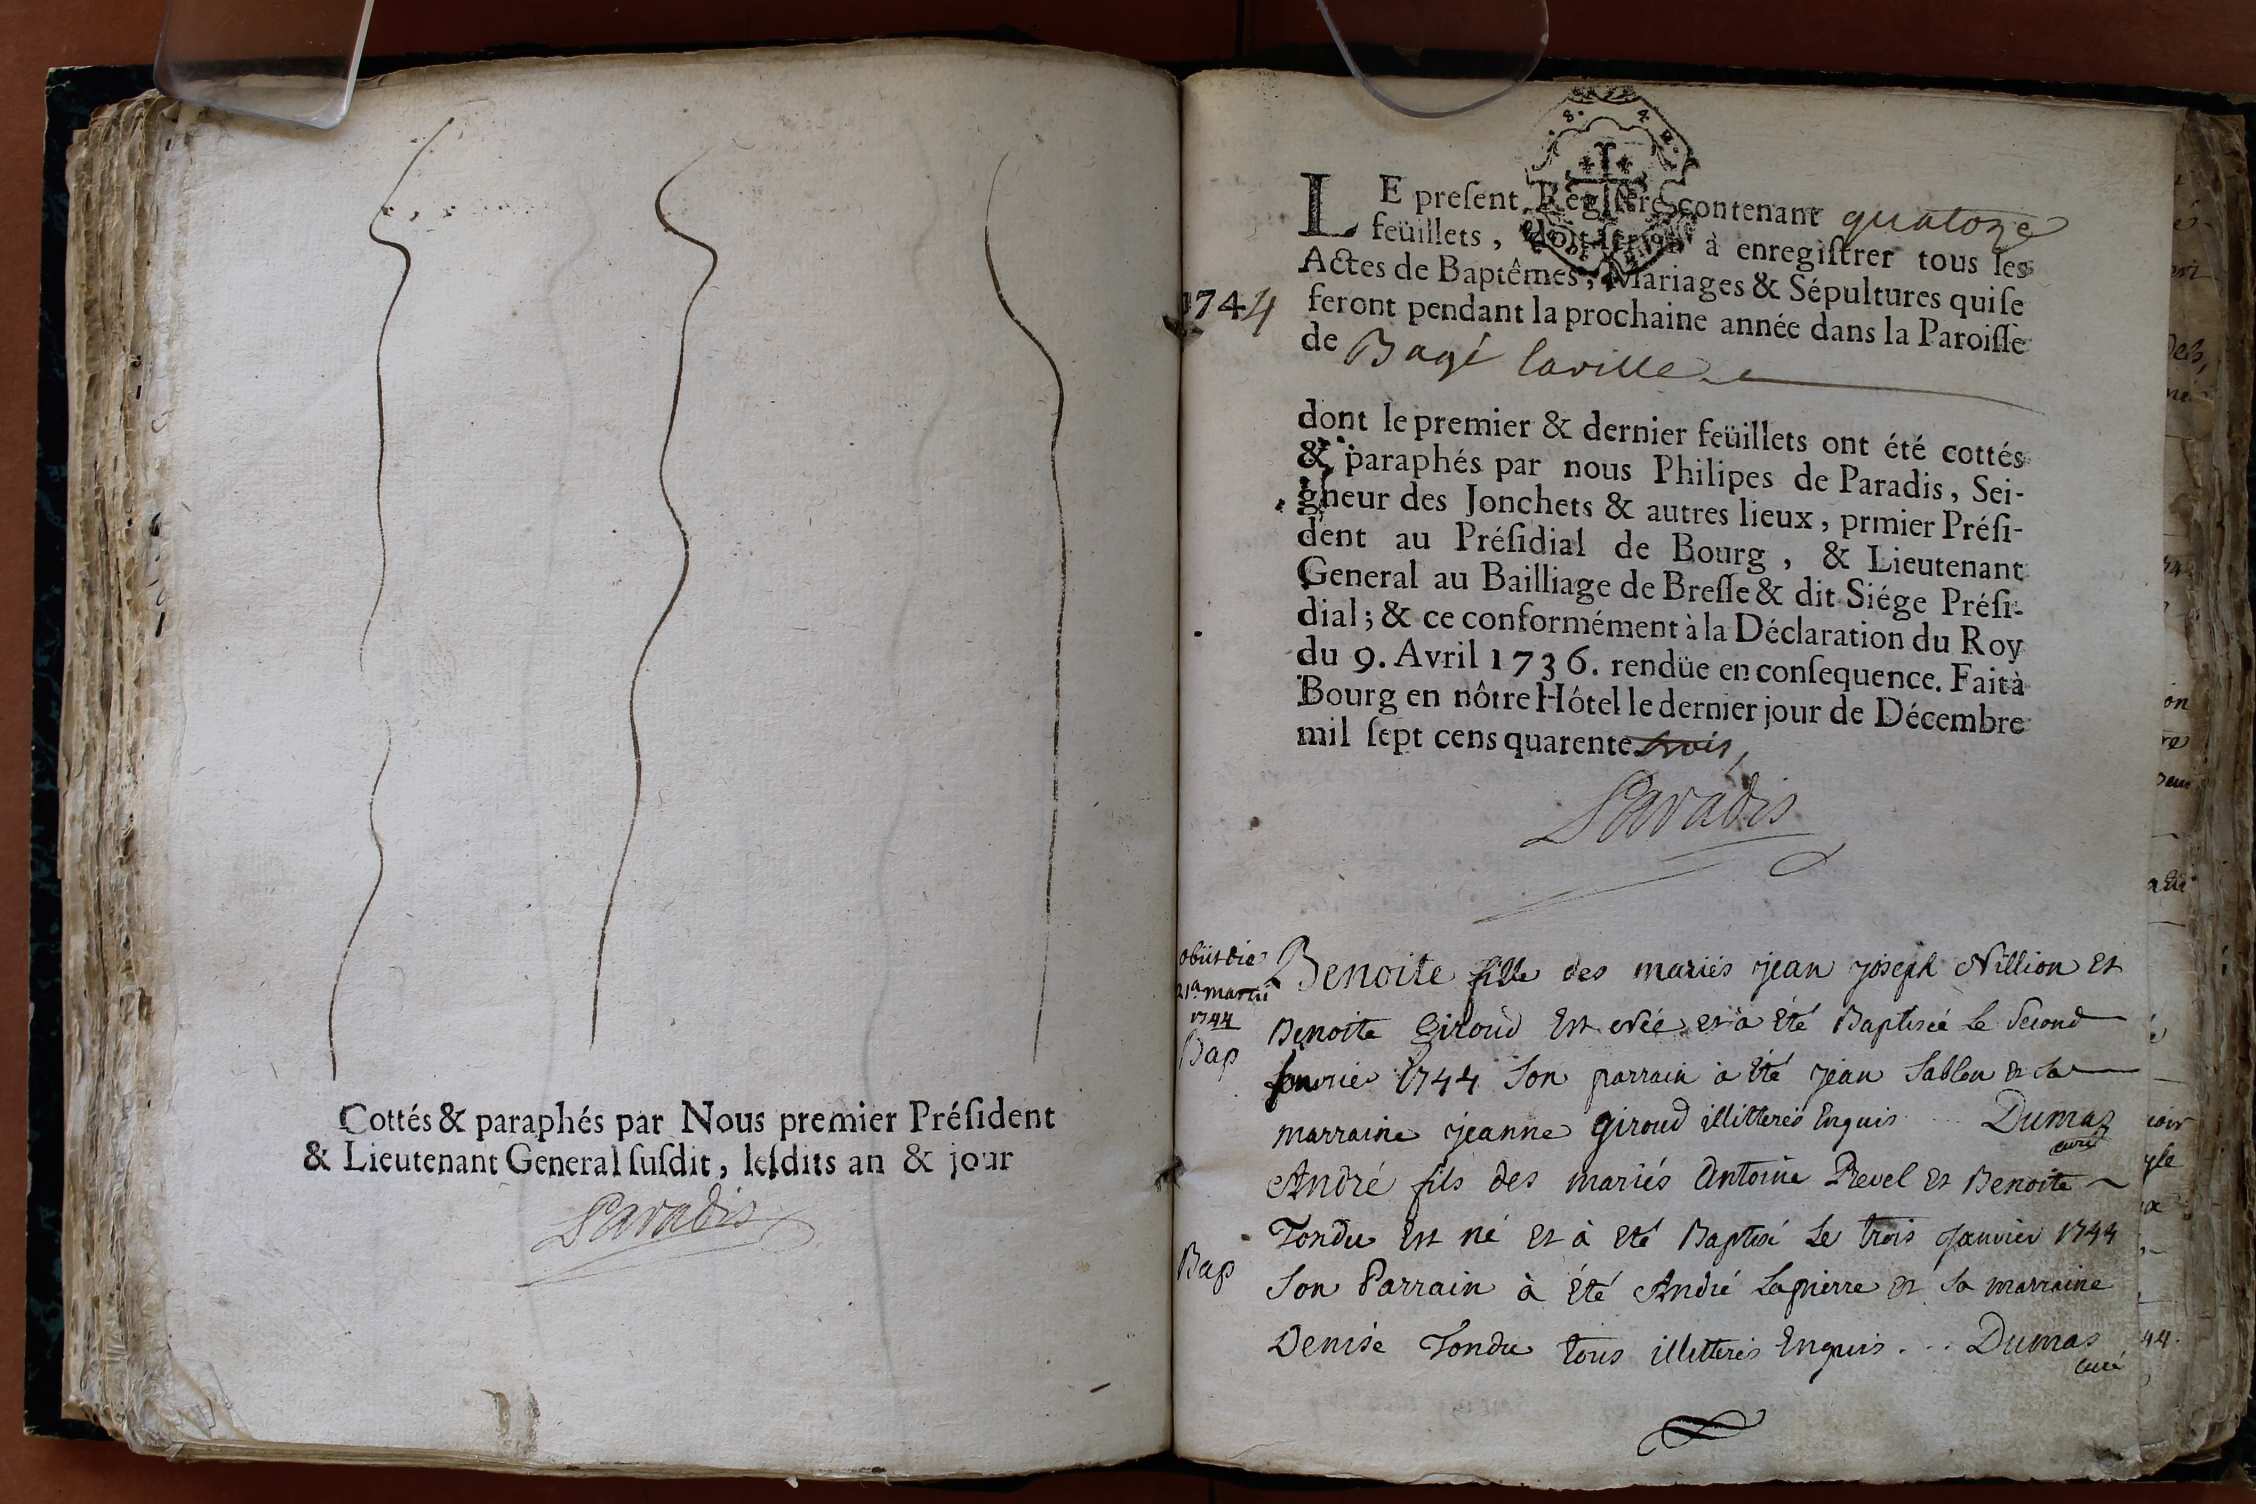 Cottés & paraphés par Nous premier Préſident
& Lieutenant General ſuſdit, leſdits an & jour
Paradis
LE preſent Regiſtre contenant quatoze
feüillets, doit ſervir à enregiſtrer tous les
Actes de Baptêmes, Mariages & Sépultures qui ſe
1744
feront pendant la prochaine année dans la Paroiſſe
de Bagé laville
dont le premier & dernier feüillets ont été cottés
& paraphés par nous Philipes de Paradis, Sei-
gneur des Jonchets & autres lieux, prmier Préſi-
dent au Préſidial de Bourg, & Lieutenant
General au Bailliage de Breſſe & dit Siége Préſi-
dial; & ce conformément à la Déclaration du Roy
du 9. Avril 1736. rendüe en conſequence. Fait à
Bourg en nôtre Hôtel le dernier jour de Décembre
mil ſept cens quarente trois,
Paradis
obiit die
21a martii
1744
Bap
Benoite fille des mariés jean joseph Nillion et
Benoite Giroud Est née et à été Baptiseé le second
1744 Son parrain a été jean Sablon et sa
marraine jeanne giroud illitterés Enquis Dumas
curé
André fils des mariés Antoine Revel et Benoite
Tondu Est né et à été Baptisé le trois janvier 1744
Bap
Son Parrain à été André Lapierre et sa marraine
Denise Tondu tous illitterés Enquis . . . Dumas
curé